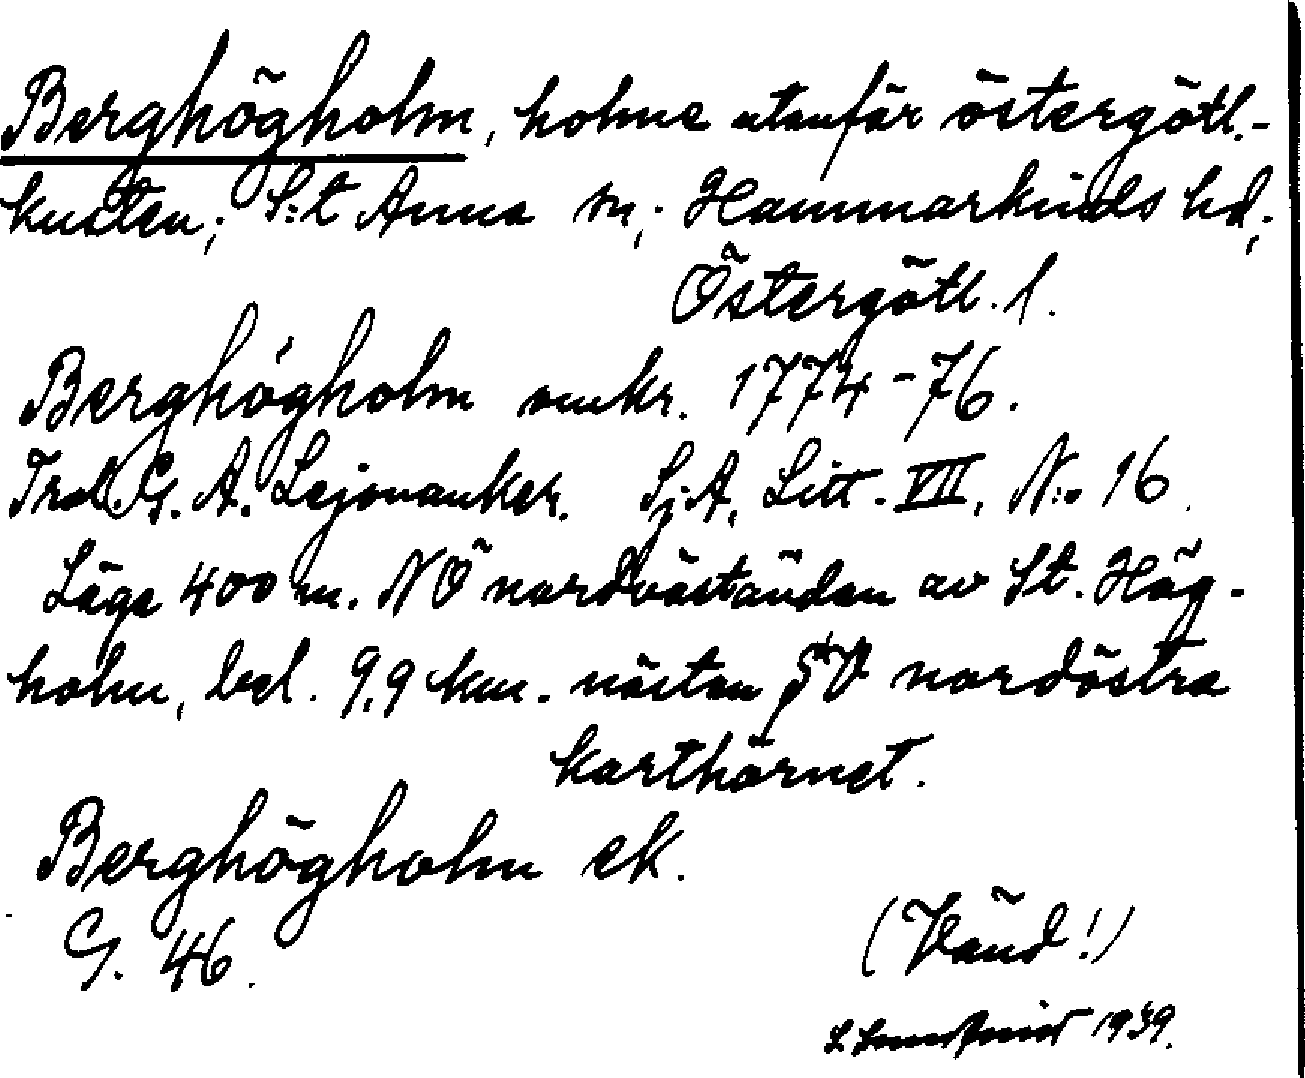 Berghögholm, holme utanför östergötl.-
kusten; S:t Anna sn; Hammarkinds hd,
Östergötl. l.
Berghógholm omkr. 1774-76.
Trol. G. A. Lejonanker. Sj.A. Litt. VII. N:o 16.
Läge 400 m. NÖ nordväständan av St. Hög-
holm, bel. 9,9 km. nästan SV nordöstra
karthörnet.
Berghögholm ek.
G. 46.
(Vänd!)
1939.